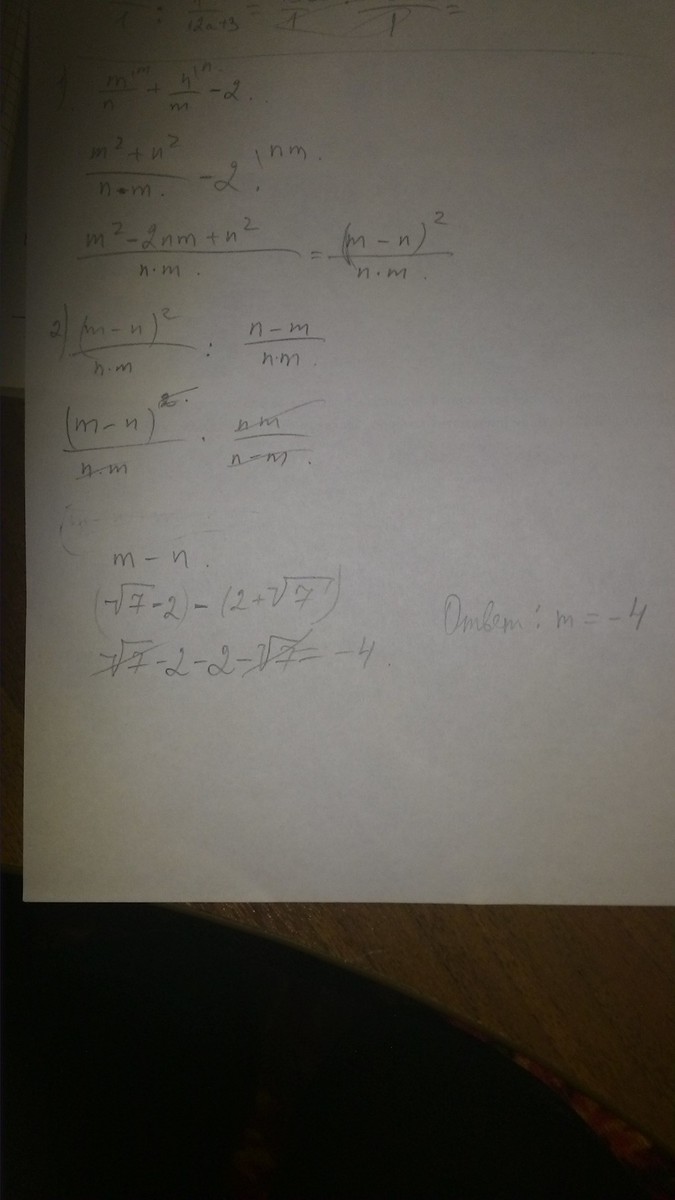 1 : 1/12a+3 = 1 · 1 =
1) m/n + n/m - 2
(m² + n²)/(n·m) - 2
(m² - 2nm + n²)/(n·m) = (m - n)²/(n·m)
2) (m - n)²/(n·m) : (n - m)/(n·m)
(m - n)²/(n·m) · nm/(n-m)
m - n.
(√7 - 2) - (2 + √7)
√7 - 2 - 2 - √7 = -4 Ответ: m = -4